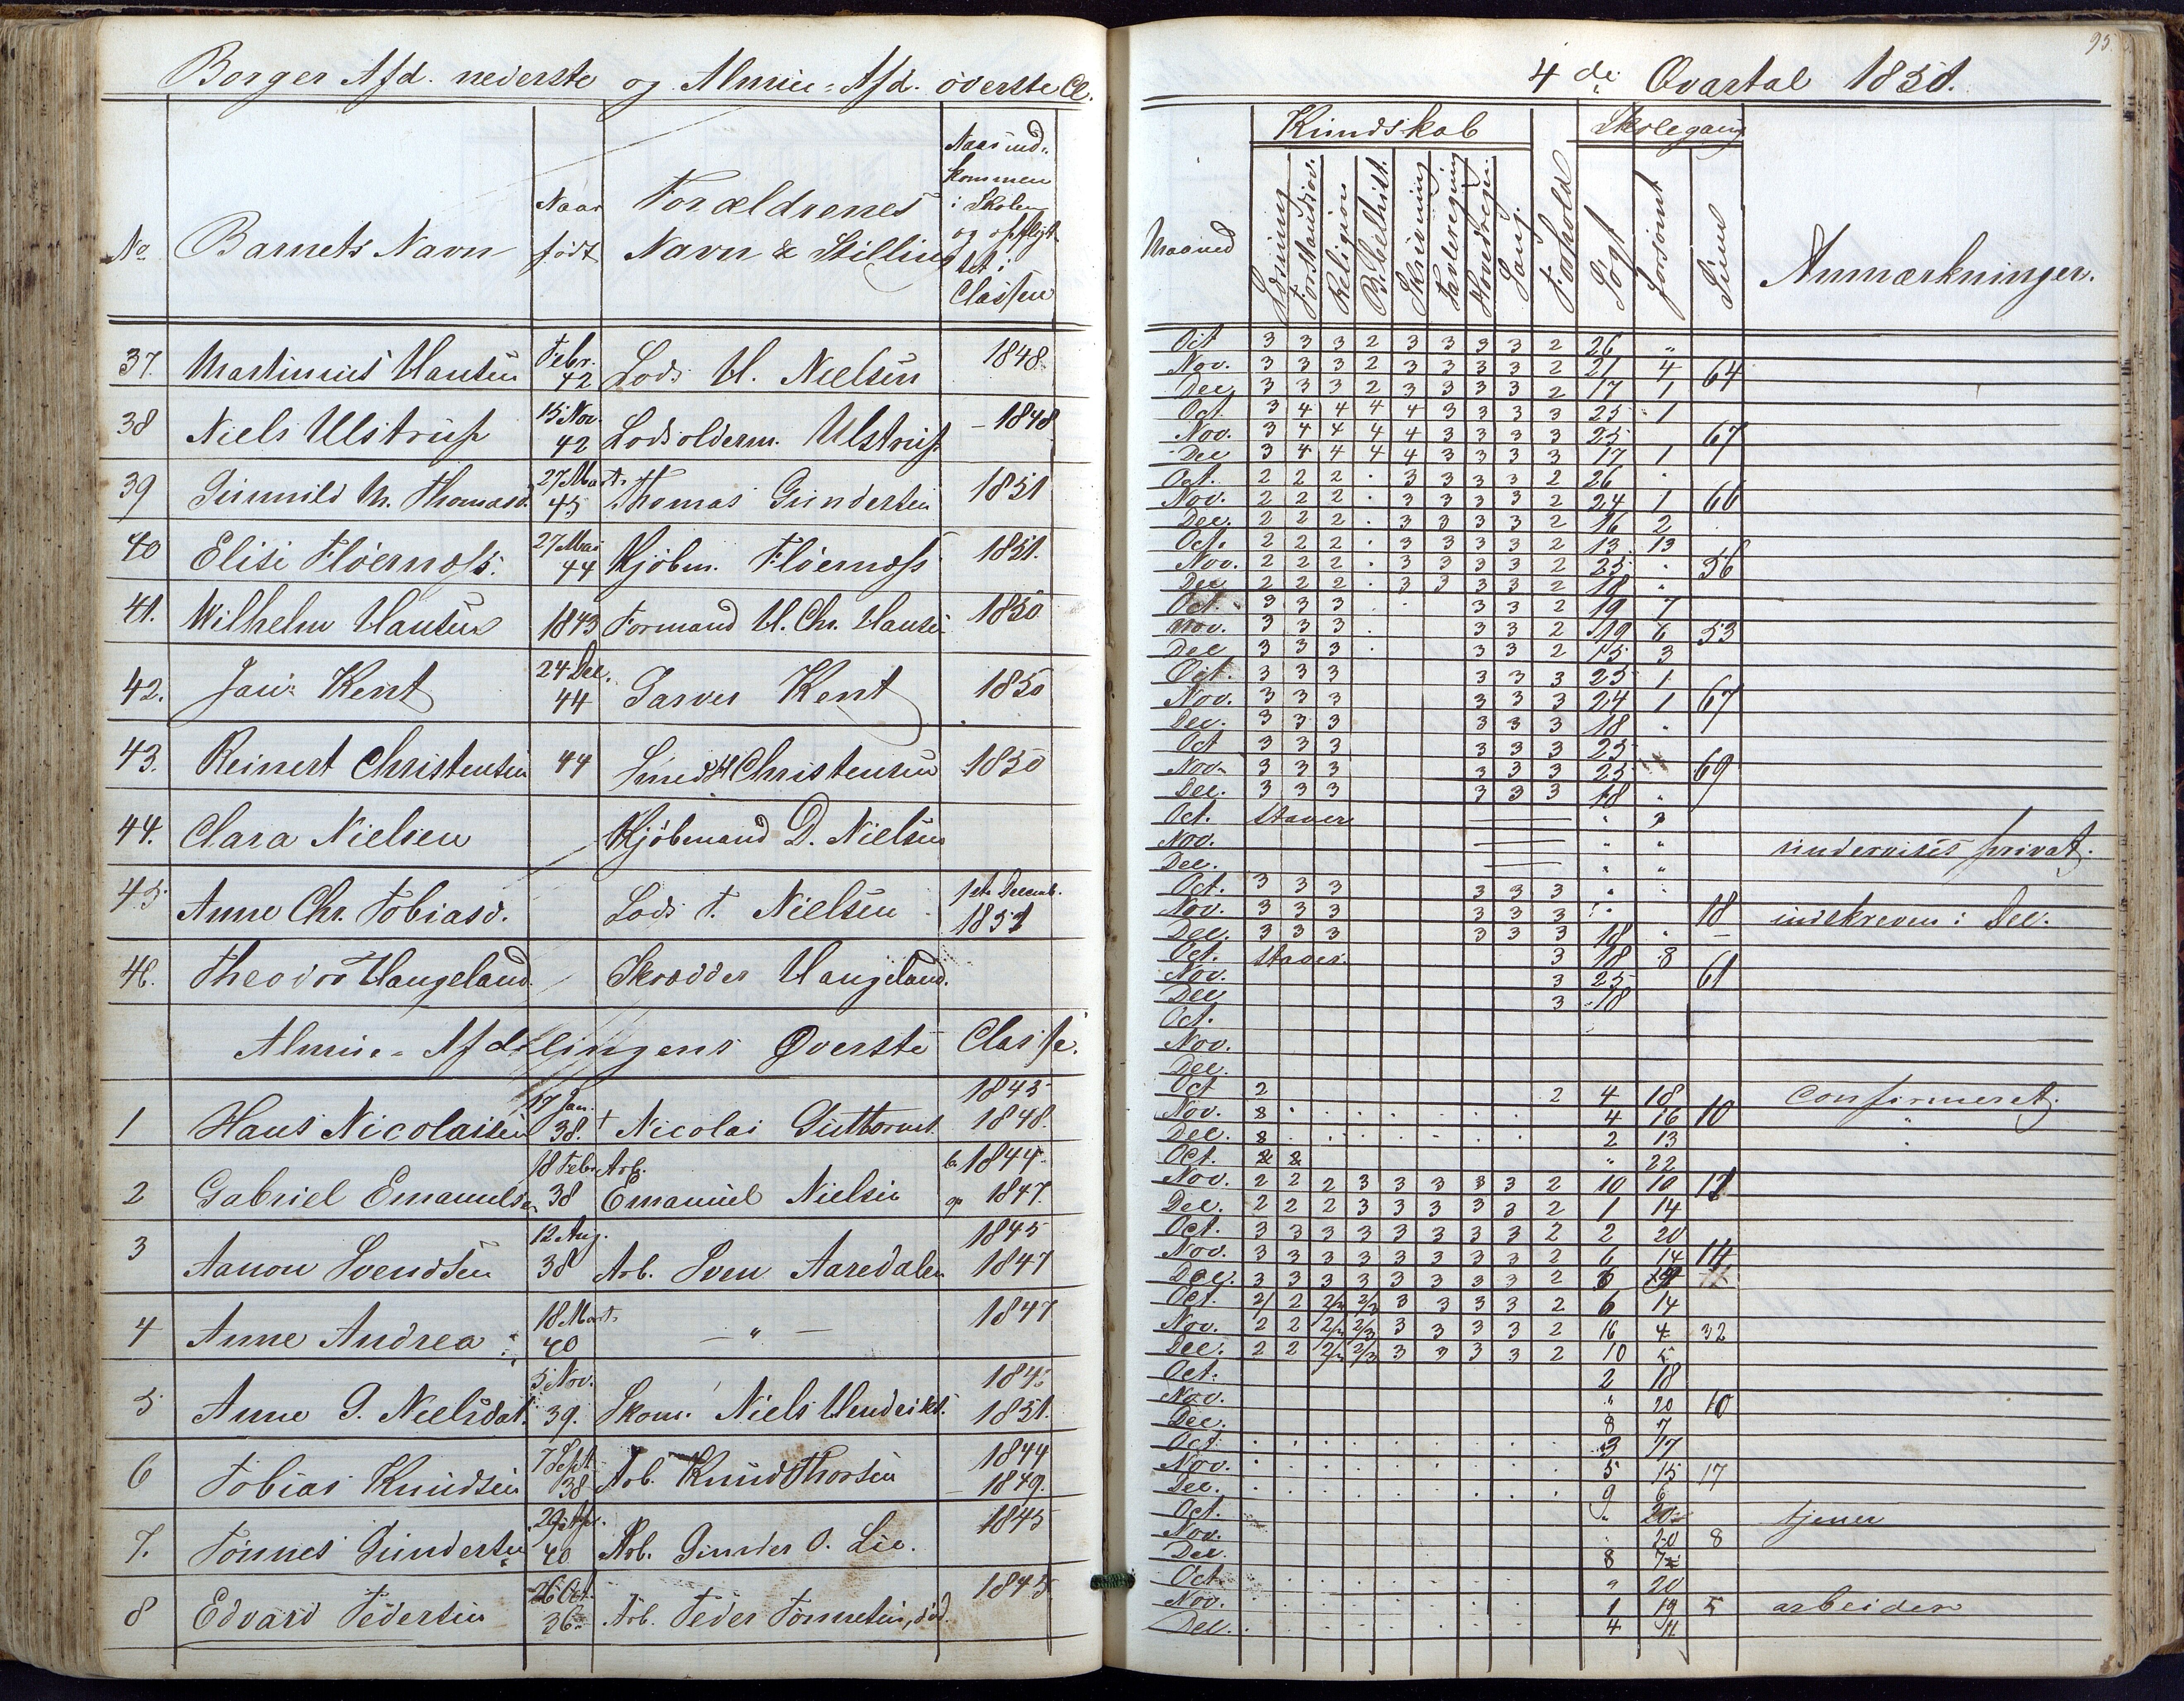 Borger Afd. nederste og Almue-Afd. överste Cl.
No
Barnets Navn
Naar födt
Forældrenes Navn & Stilling
Naar ind-
kommen
i Skolen
og opflyt-
tet i
Classen
37. Martinius Hansen Febr. 42 Lods H. Nielsen 1848.
38 Niels Ulstrup 15 Nov. 42 Lodsolderm. Ulstrup. – 1848
39 Gunnild M. Thomasd. 27 Marts 45 Thomas Gundersen 1851
40 Elise Flöernoss. 27 Mai 44 Kjöbm. Flöernoss 1851.
41. Wilhelm Hansen 1843 Formand H. Chr. Hansen 1850
42. Jan: Kent 24 Dec. 44 Garver Kent 1850
43. Reinert Christensen 44 Christensen 1850
44. Clara Nielsen Kjöbmand D. Nielsen
45 Anne Chr. Tobiasd. Lods T. Nielsen 1ste Decemb. 1851
46. Theodor Haugeland. Skrædder Haugeland.
Almue-Afdelingens Øverste Classe.
1 Hans Nicolaisen 17 Jan. 38. † Nicolai Guttorms. 1845 1848.
2 Gabriel Emanuelsen 18 Febr. 38 Arb. Emanuel Nielsen 1844. 1847.
3 Aanon Svendsen 12 Aug. 38 Arb. Sven Aaredalen 1845 1847
4 Anne Andrea 18 Marts 40 — " — 1847
5 Anne G. Nielsdat. 5 Nov. 39. Skom. Niels Hendriks. 1851.
6 Tobias Knudsen 7 Sept. 38 Arb. Knud Thorsen 1844 – 1849.
7. Tönnes Gundersen 40 Arb. Gunder O. Lie. 1845
8 Edvard Pedersen 26 Oct. 36 Arb. Peder Tönnesen, död 1845
95.
4de Qvartal 1851.
Maaned
Kundskab
Læsning
Forstandsöv.
Religion
Bibelhist.
Skrivning
Tavleregning
Hovedregn.
Sang.
Forhold
Skolegang
Sögt
forsömt
Sum
Anmærkninger.
Oct 3 3 3 2 3 3 3 3 2 26 "
Nov. 3 3 3 2 3 3 3 3 2 21 4 64
Dec 3 3 3 2 3 3 3 3 2 17 1
Oct. 3 4 4 4 4 3 3 3 3 25 1
Nov. 3 4 4 4 4 3 3 3 3 25 67
Dec 3 4 4 4 4 3 3 3 3 17 1
Oct. 2 2 2 . 3 3 3 3 2 26 "
Nov. 2 2 2 . 3 3 3 3 2 24 1 66
Dec. 2 2 2 . 3 3 3 3 2 16 2
Oct. 2 2 2 . 3 3 3 3 2 13 13
Nov. 2 2 2 . 3 3 3 3 2 25 . 56
Dec 2 2 2 . 3 3 3 3 2 18 "
Oct. 3 3 3 . . 3 3 2 19 7
Nov. 3 3 3 . 3 3 2 19 6 53
Dec 3 3 3 . 3 3 2 15 3
Oct. 3 3 3 3 3 3 25 1
Nov. 3 3 3 3 3 3 24 1 67
Dec. 3 3 3 3 3 3 18 "
Oct 3 3 3 3 3 3 25
Nov. 3 3 3 3 3 3 25 69
Dec. 3 3 3 3 3 3 18 "
Oct. Staver "
Nov. " " undervises privat.
Dec. " "
Oct. 3 3 3 3 3 3 "
Nov. 3 3 3 3 3 3 " 18 indskreven i Dec.
Dec. 3 3 3 3 3 3 18 "
Oct. Staver. 3 18 8
Nov. 3 25 61
Dec 3 18
Oct.
Nov.
Dec.
Oct 2 2 4 18 confirmeret.
Nov. 8 . . . . . . . 4 16 10 "
Dec. 8 . . . . . . . 2 13 "
Oct. 2 2 " 22
Nov. 2 2 2 3 3 3 3 3 2 10 10 11
Dec. 2 2 2 3 3 3 3 3 2 1 14
Oct. 3 3 3 3 3 3 3 3 2 2 20
Nov. 3 3 3 3 3 3 3 3 2 6 14 14
Dec. 3 3 3 3 3 3 3 3 2 6
Oct. 2/ 2 2/3 2/3 3 3 3 3 2 6 14
Nov. 2 2 2/3 2/3 3 3 3 3 2 16 4 32
Dec. 2 2 2/3 2/3 3 3 3 3 2 10 5
Oct. 2 18
Nov. " 20 10
Dec. 8 7
Oct . . . . . . . . . 3 17
Nov. . . . . . . . . . 5 15 17
Dec. . . . . . . . . . 9 6
Oct. " 20 tjener
Nov. " 20 8
Dec. 8 7
Oct. " 20
Nov. 1 19 5 arbeider
Dec. 4 11